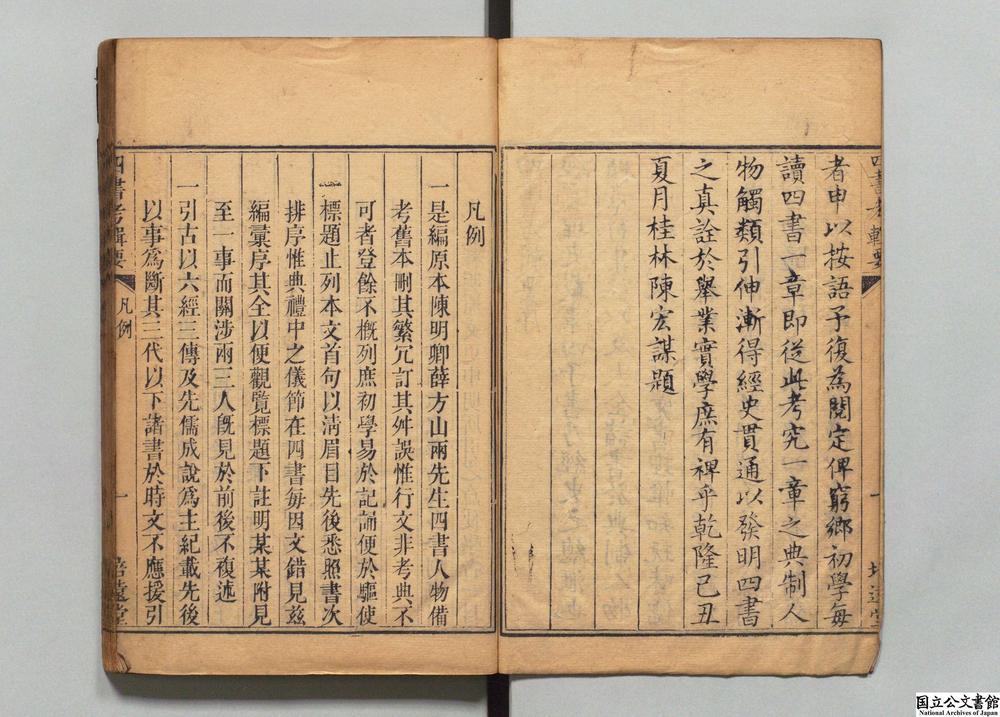 者申以按語予復為閱定俾窮鄉初學每
讀四書一章即從此考究一章之典制人
物觸類引伸漸得經史貫通以發明四書
之真詮於舉業實學庶有裨乎乾隆己丑
夏月桂林陳宏謀題
凡例
一是編原本陳明卿薛方山兩先生四書人物備
考舊本刪其繁冗訂其舛誤惟行文非考典不
可者登餘不槪列庶初學易於記誦便於驅使
一標題止列本文首句以清眉目先後悉照書次
排序惟典禮中之儀節在四書每因文錯見茲
編彙序其全以便觀覽標題下註明某某附見
至一事而關涉兩三人旣見於前後不複述
一引古以六經三傳及先儒成說爲主紀載先後
以事爲斷其三代以下諸書於時文不應援引
四書考輯要
凡例
一
培遠堂
国立公文書館
National Archives of Japan